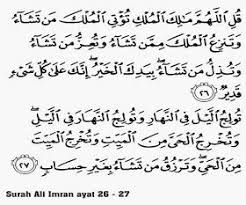 قُلِ اللَّهُمَّ مَالِكَ الْمُلْكِ تُؤْتِي الْمُلْكَ مَن تَشَاءُ
وَتَنزِعُ الْمُلْكَ مِمَّن تَشَاءُ وَتُعِزُّ مَن تَشَاءُ
وَتُذِلُّ مَن تَشَاءُ بِيَدِكَ الْخَيْرُ إِنَّكَ عَلَىٰ كُلِّ شَيْءٍ
قَدِيرٌ ٢٦ تُولِجُ اللَّيْلَ فِي النَّهَارِ وَتُولِجُ النَّهَارَ فِي اللَّيْلِ
وَتُخْرِجُ الْحَيَّ مِنَ الْمَيِّتِ وَتُخْرِجُ الْمَيِّتَ
مِنَ الْحَيِّ وَتَرْزُقُ مَن تَشَاءُ بِغَيْرِ حِسَابٍ ٢٧
Surah Ali Imran ayat 26 - 27